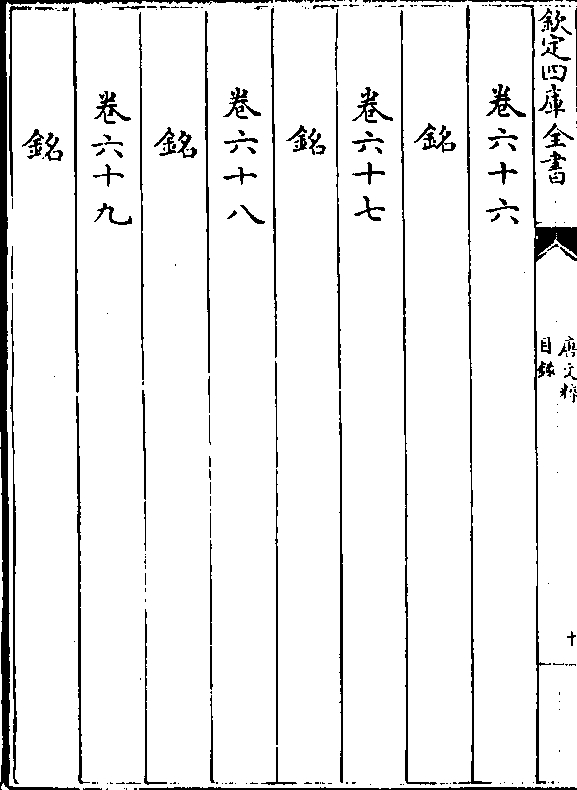 欽定四庫全書
唐文粹
目録
十
卷六十六
銘
卷六十七
銘
卷六十八
銘
卷六十九
銘